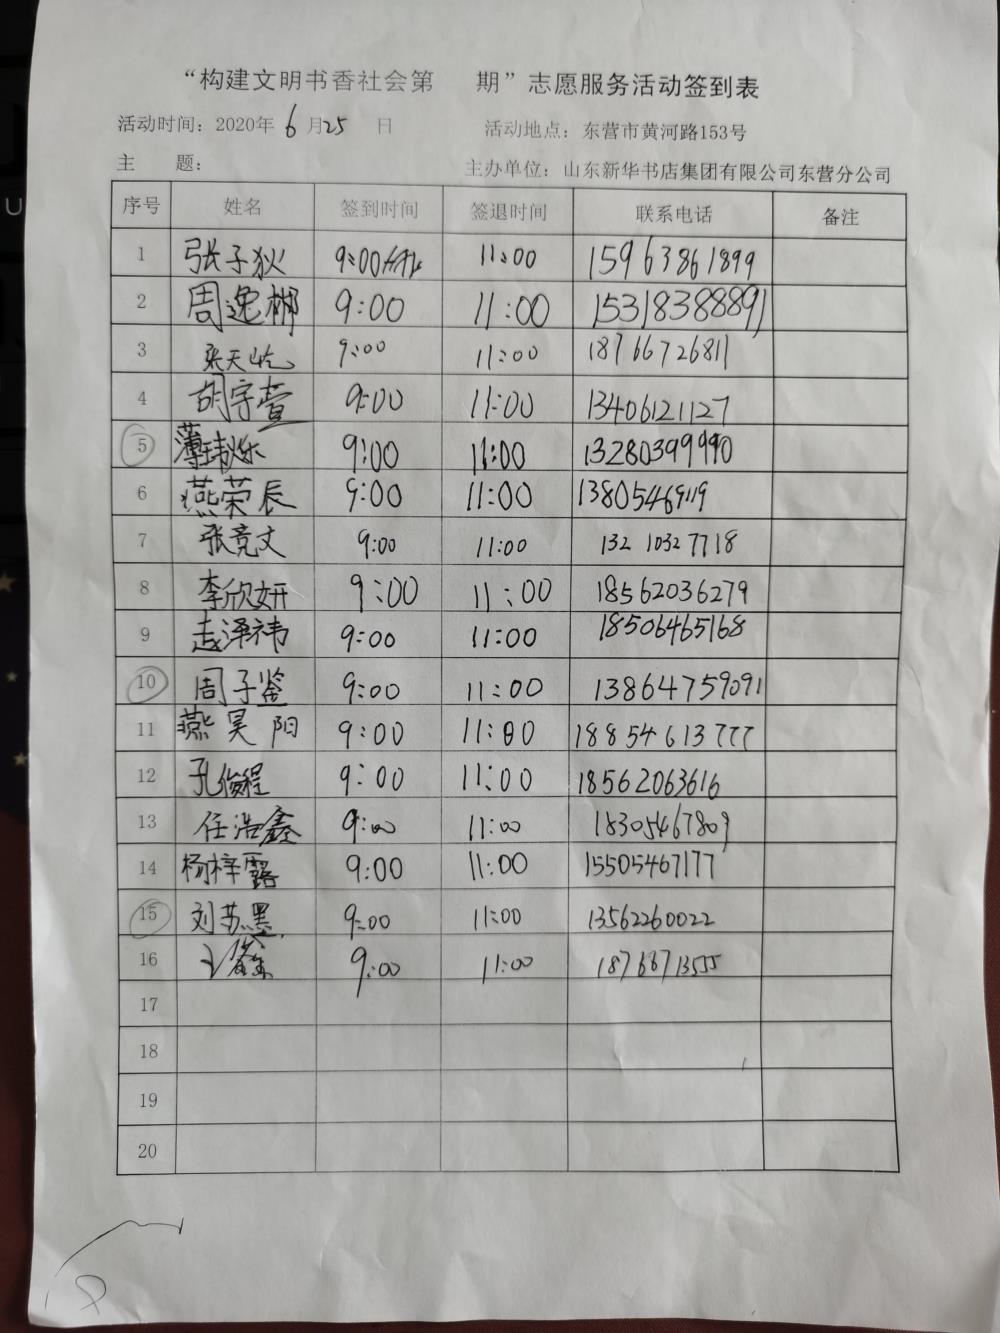 “构建文明书香社会第 期”志愿服务活动签到表
活动时间：2020年 6 月25 日 活动地点：东营市黄河路153号
主 题： 主办单位：山东新华书店集团有限公司东营分公司
序号 姓名 签到时间 签退时间 联系电话 备注
1 张子狄 9:00 11:00 15963861899
2 周逸彬 9:00 11:00 15318388891
3 张天屹 9:00 11:00 18766726811
4 胡宇萱 9:00 11:00 13406121127
5 9:00 11:00 13280399990
6 燕荣辰 9:00 11:00 13805469119
7 张竞文 9:00 11:00 132 1032 7718
8 李欣妍 9:00 11:00 18562036279
9 赵泽祎 9:00 11:00 18506465168
10 周子鉴 9:00 11:00 13864759091
11 燕昊阳 9:00 11:00 18854613777
12 孔俊程 9:00 11:00 18562063616
13 任浩鑫 9:00 11:00 18305467809
14 杨梓露 9:00 11:00 15505467177
15 刘苏墨 9:00 11:00 13562260022
16 9:00 11:00 18768713555
17
18
19
20